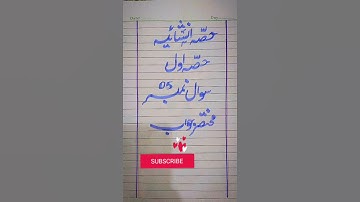 حصّہ انشائیہ
حصّہ اول
سوال نمبر 05
مختصر جواب
SUBSCRIBE